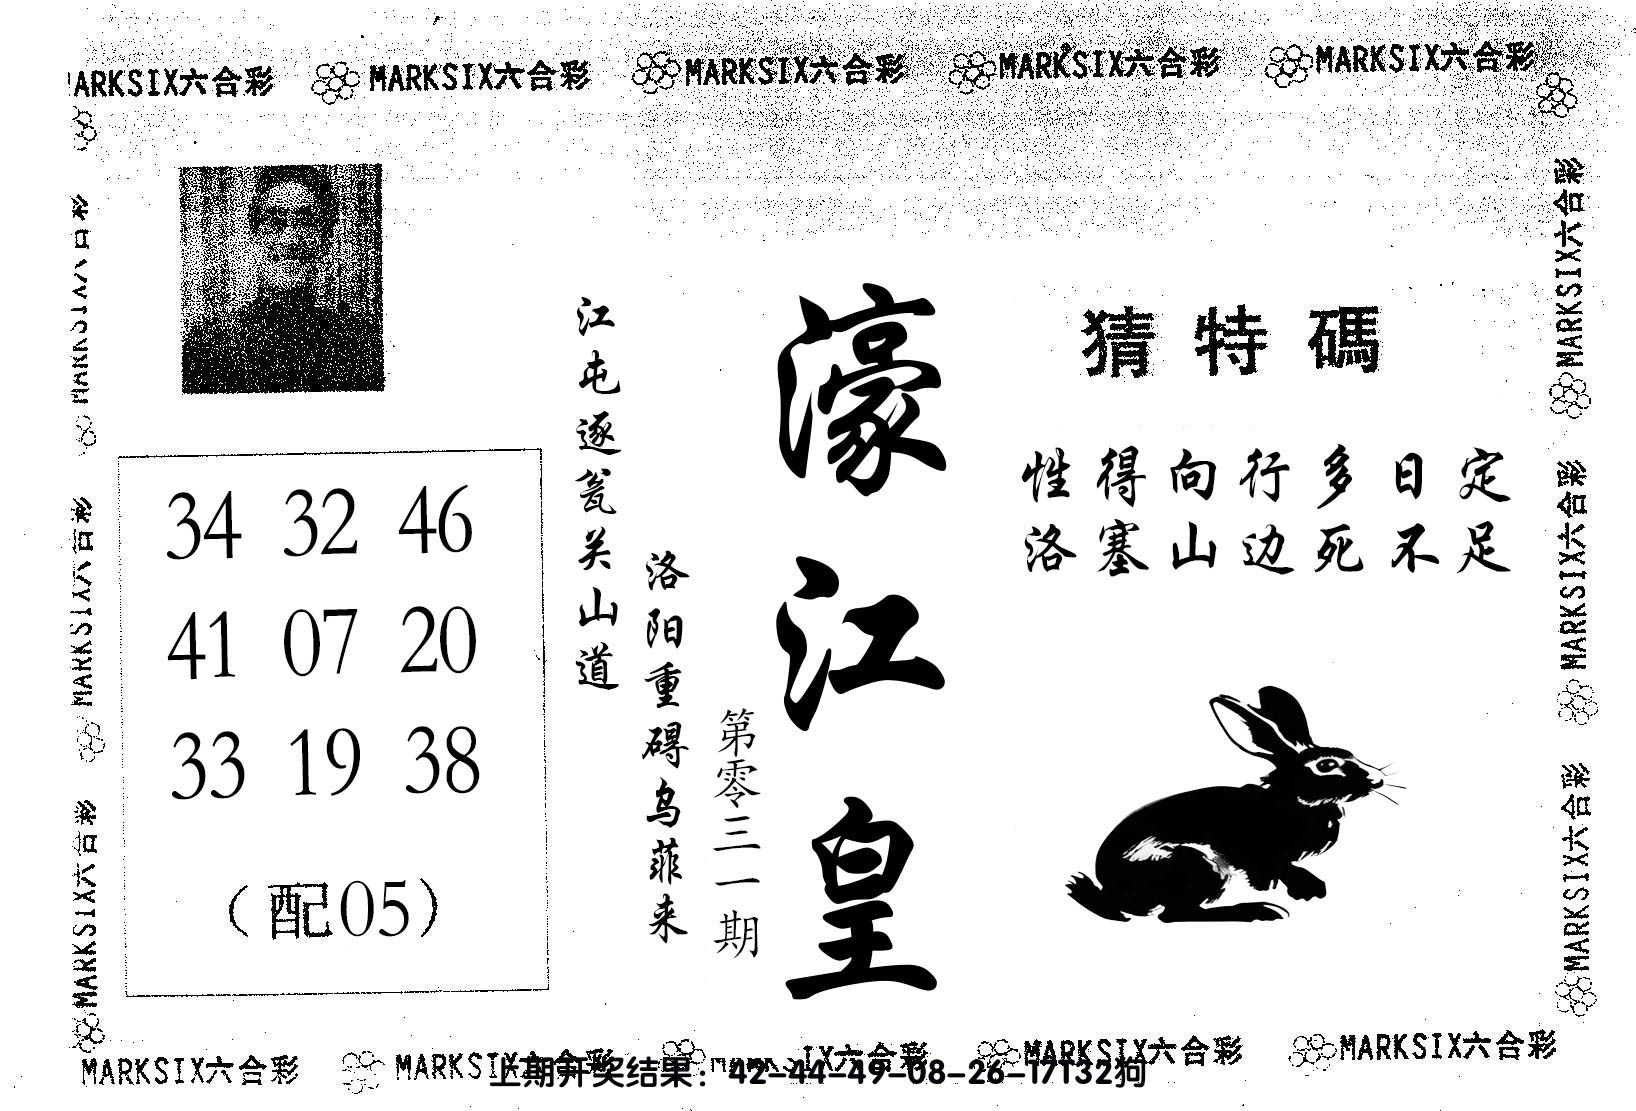 MARKSIX六合彩 MARKSIX六合彩 MARKSIX六合彩 MARKSIX六合彩 MARKSIX六合彩
猜特碼
性得向行多日定
洛塞山边死不足
濠江皇
第零三一期
洛阳重碍乌菲来
江屯逐瓮关山道
34 32 46
41 07 20
33 19 38
(配05)
MARKSIX六合彩
MARKSIX六合彩
MARKSIX六合彩
MARKSIX六合彩
MARKSIX六合彩
MARKSIX六合彩
MARKSIX六合彩 MARKSIX六合彩 IX六合彩 MARKSIX六合彩 MARKSIX六合彩
上期开奖结果：42-44-49-08-26-17T32狗